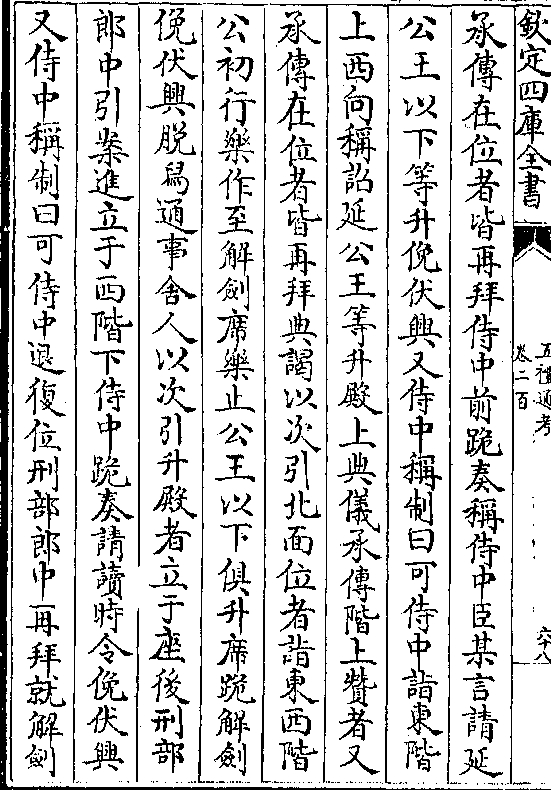 欽定四庫全書
五禮通考
卷二百
六十八
承傳在位者皆再拜侍中前跪奏稱侍中臣某言請延
公王以下等升俛伏興又侍中稱制曰可侍中詣東階
上西向稱詔延公王等升殿上典儀承傳階上贊者又
承傳在位者皆再拜典謁以次引北面位者詣東西階
公初行樂作至解劍席樂止公王以下俱升席跪解劍
俛伏興脫舄通事舍人以次引升殿者立于座後刑部
郎中引案進立于西階下侍中跪奏請讀時令俛伏興
又侍中稱制曰可侍中退復位刑部郎中再拜就解劍